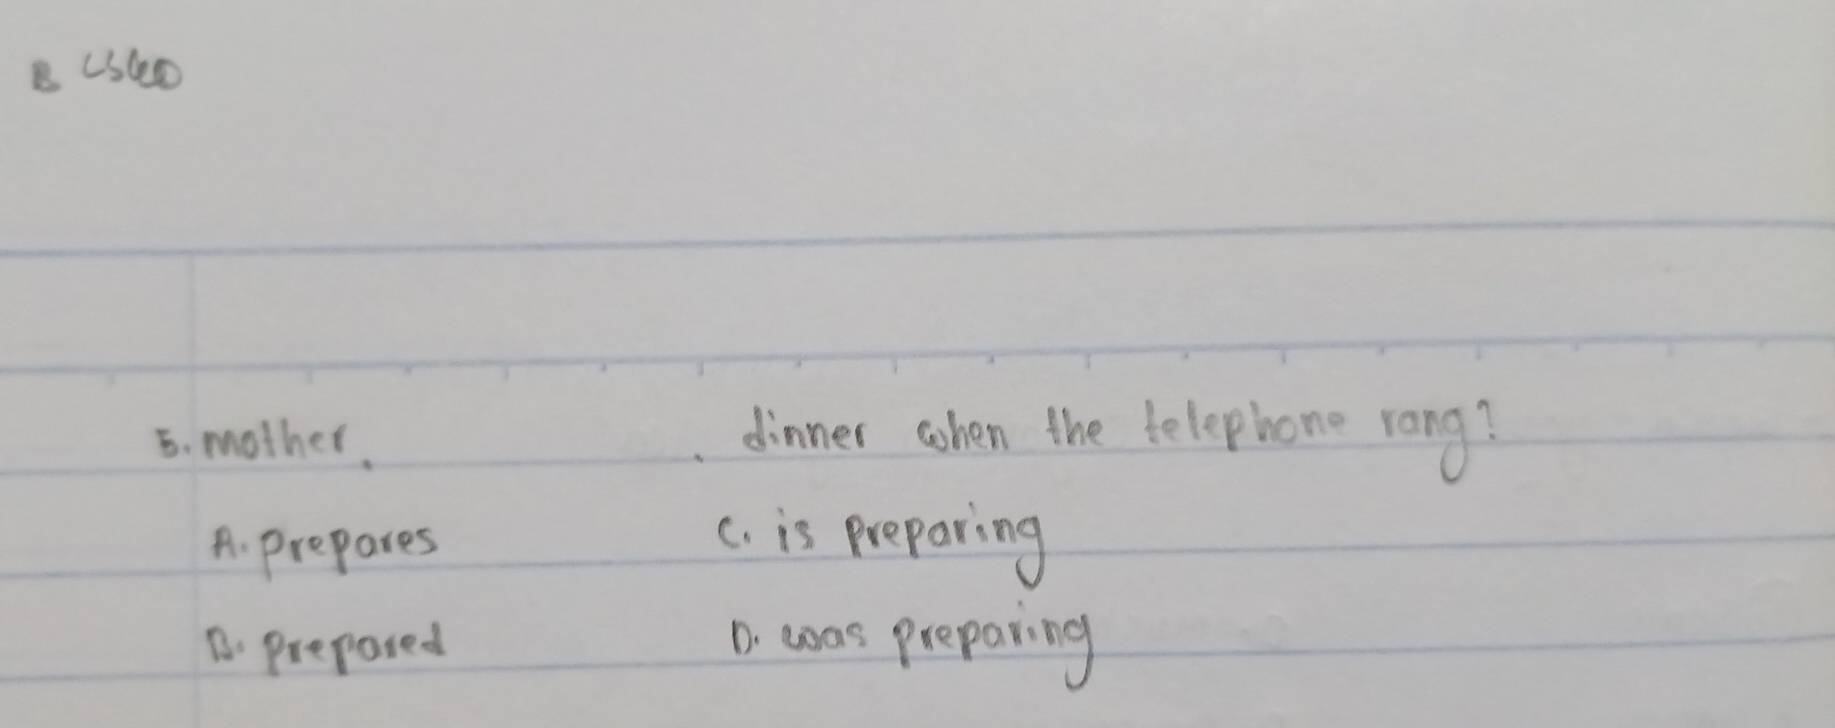 B
5. mother. . dinner when the telephone rang?
A. prepares C. is preparing
B. prepared D. was preparing